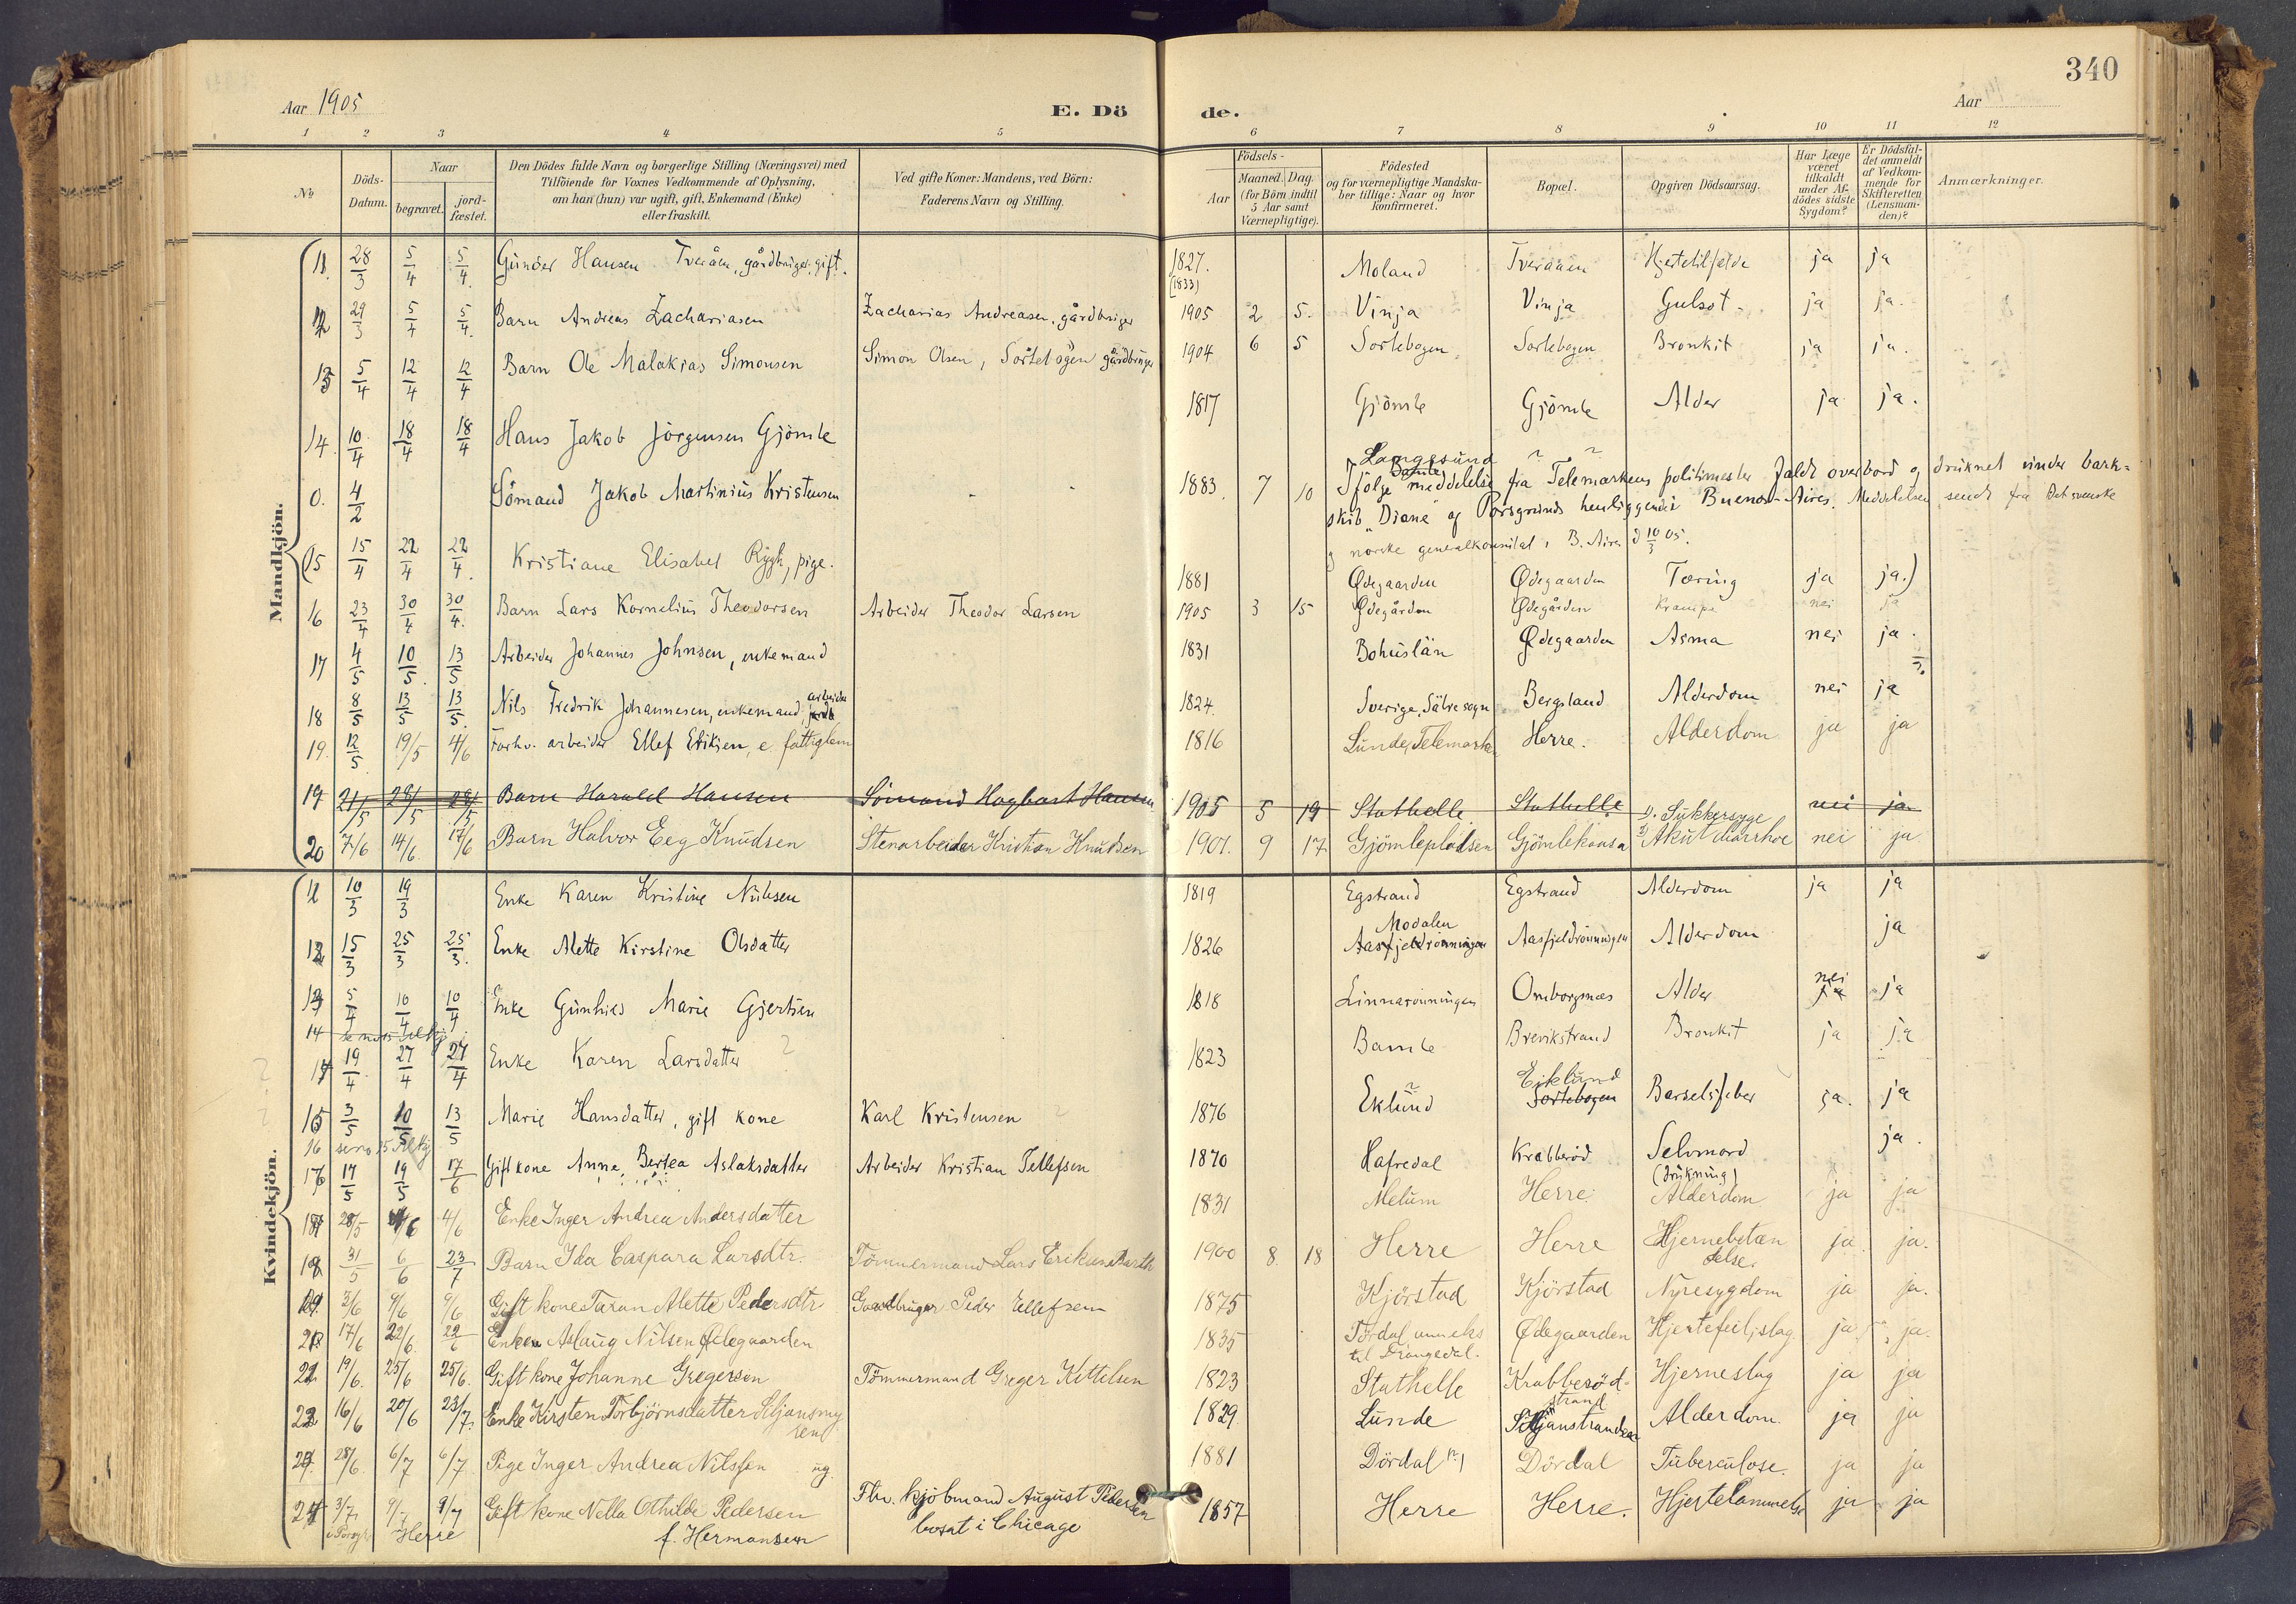 340
Aar 1905
E. Dö
de.
Aar
1 2 3 4 5 6 7 8 9 10 11 12
No
Döds-Datum.
Naar
begravet.
jord-fæstet.
Den Dödes fulde Navn og borgerlige Stilling (Næringsvei) med
Tilföiende for Voxnes Vedkommende af Oplysning,
om han (hun) var ugift, gift, Enkemand (Enke)
eller fraskilt.
Ved gifte Koner: Mandens, ved Börn:
Faderens Navn og Stilling.
Födsels-
Aar
Maaned. Dag.
(for Börn indtil
5 Aar samt
Værnepligtige).
Födested
og for værnepligtige Mandska-
ber tillige: Naar og hvor
konfirmeret.
Bopæl.
Opgiven Dödsaarsag.
Har Læge
været
tilkaldt
under Af-
dödes sidste
Sygdom?
Er Dödsfal-
det anmeldt
af Vedkom-
mende for
Skifteretten
(Lensman-
den)?
Anmærkninger.
Mandkjön.
11. 28/3 5/4 5/4. Gunder Hansen Tveråen, gårdbruger, gift. 1827. (1833) Moland Tveraaen Hjertetilfælde ja ja
12 29/3 5/4 5/4. Barn Andreas Zachariasen Zacharias Andreasen, gårdbruger 1905 2 5. Vinja Vinja Gulsot ja ja.
13 5/4 12/4 12/4 Barn Ole Malakias Simonsen Simon Olsen, Sortebogen gårdbruger 1904 6 5 Sortebogen Sortebogen Bronkit ja ja.
14. 10/4 18/4 18/4 Hans Jakob Jörgensen Gjömle 1817 Gjömle Gjömle Alder ja ja.
0. 4/2 Sömand Jakob Martinius Kristensen 1883. 7 10 Langesund Bamle ? ?
Ifölge meddelelse fra Telemarkens politimester faldt overbord og druknet under bark-
skib "Diana" af Porsgrunds henliggende i Buenos-Aires. Meddelelsen sendt fra det svenske
og norske generalkonsulat i B. Aires d 10/3 05.
(15 15/4 22/4 22/4. Kristiane Elisabet Rygh, pige. 1881 Ødegaarden Ødegaarden Tæring ja ja.)
16 23/4 30/4 30/4. Barn Lars Kornelius Theodorsen Arbeider Theodor Larsen 1905 3 15 Ødegården Ødegården Krampe nei ja
17 4/5 10/5. 13/5 Arbeider Johannes Johnsen, enkemand 1831 Bohuslän Ødegaarden Asma nei ja.
18 8/5 13/5 13/5. Nils Fredrik Johannesen, enkemand, arbeider 1824. Sverige, Sätre sogn Bergsland Alderdom nei ja
19. 12/5 19/5 4/6 Forhv. arbeider Ellef Eriksen, e. fattiglem 1816 Lunde, Telemarken Herre. Alderdom ja ja
19 21/5 28/5 28/5 Barn Harald Hansen Sömand Hagbart Hansen 1905 5 19 Stathelle Stathelle 1). Sukkersyge nei ja
20 7/6 14/6. 17/6 Barn Halvor Eeg Knudsen Stenarbeider Kristian Knudsen 1901. 9 17 Gjömlepladsen Gjömlekaasa 2) Akut diarrhoe nei ja
Kvindekjön.
11 10/3 19/3 Enke Karen Kristine Nilsen 1819 Egstrand Egstrand Alderdom ja ja
12 15/3 25/3 25/3. Enke Alette Kirstine Olsdatter 1826 Modalen Aasfjeldrønningen Aasfjeldrønningen Alderdom ja
13 5/4 10/4 10/4 Enke Gunhild Marie Gjertsen 1818 Linnarönningen Omborgsnæs Alder nei ja ja
14 se no 15
14 19/4. 27/4 27/4 Enke Karen Larsdatter ? 1823 Bamle Brevikstrand Bronkit ja ja
15 3/5 10/5 13/5 Marie Hansdatter, gift kone Karl Kristensen ? 1876 Eklund Eiklund Sortebogen Barselsfeber ja. ja
16 se no 15
16 17/5 19/5 17/6 Gift kone Anne Bertea Aslaksdatter Arbeider Kristian Tellefsen 1870 Hafredal Krabberöd Selvmord (drukning) ja.
17 28/5 4/6 4/6 Enke Inger Andrea Andersdatter 1831 Melum Herre. Alderdom ja ja
18 31/5 6/6 23/7 Barn Ida Caspara Larsdtr. Tömmermand Lars Eriksen Barth 1900 8. 18 Herre Herre Hjernebetændelse. ja. ja.
19. 3/6 9/6 9/6 Gift kone Taran Alette Pedersdtr Gaardbruger Peder Ellefsen 1875 Kjörstad Kjörstad Nyresygdom ja ja.
20. 17/6 22/6. 22/6 Enken Aslaug Nilsen Ødegaarden 1835 Tördal anneks til Drangedal. Ødegaarden Hjertefeil, slag ja ja.
21 19/6. 25/6 25/6. Gift kone Johanne Gregersen Tömmermand Greger Kittelsen 1823 Stathelle Krabberöd-strand Hjerneslag ja ja
22 16/6 20/6 23/7. Enke Kirsten Torbjörnsdatter Siljansmyren 1829. Lunde Siljanstranden Alderdom. ja ja
23. 28/6. 6/7 6/7 Pige Inger Andrea Nilsen ug. 1881 Dördal (?) Dördal Tuberculose. ja ja
24 3/7. 9/7 9/7 Gift kone Nella Othilde Pedersen Fhv. kjöbmand August Pedersen 1857 Herre Herre. Hjertelammelse ja ja
i Porsgr. Herre f. Hermansen bosat i Chicago